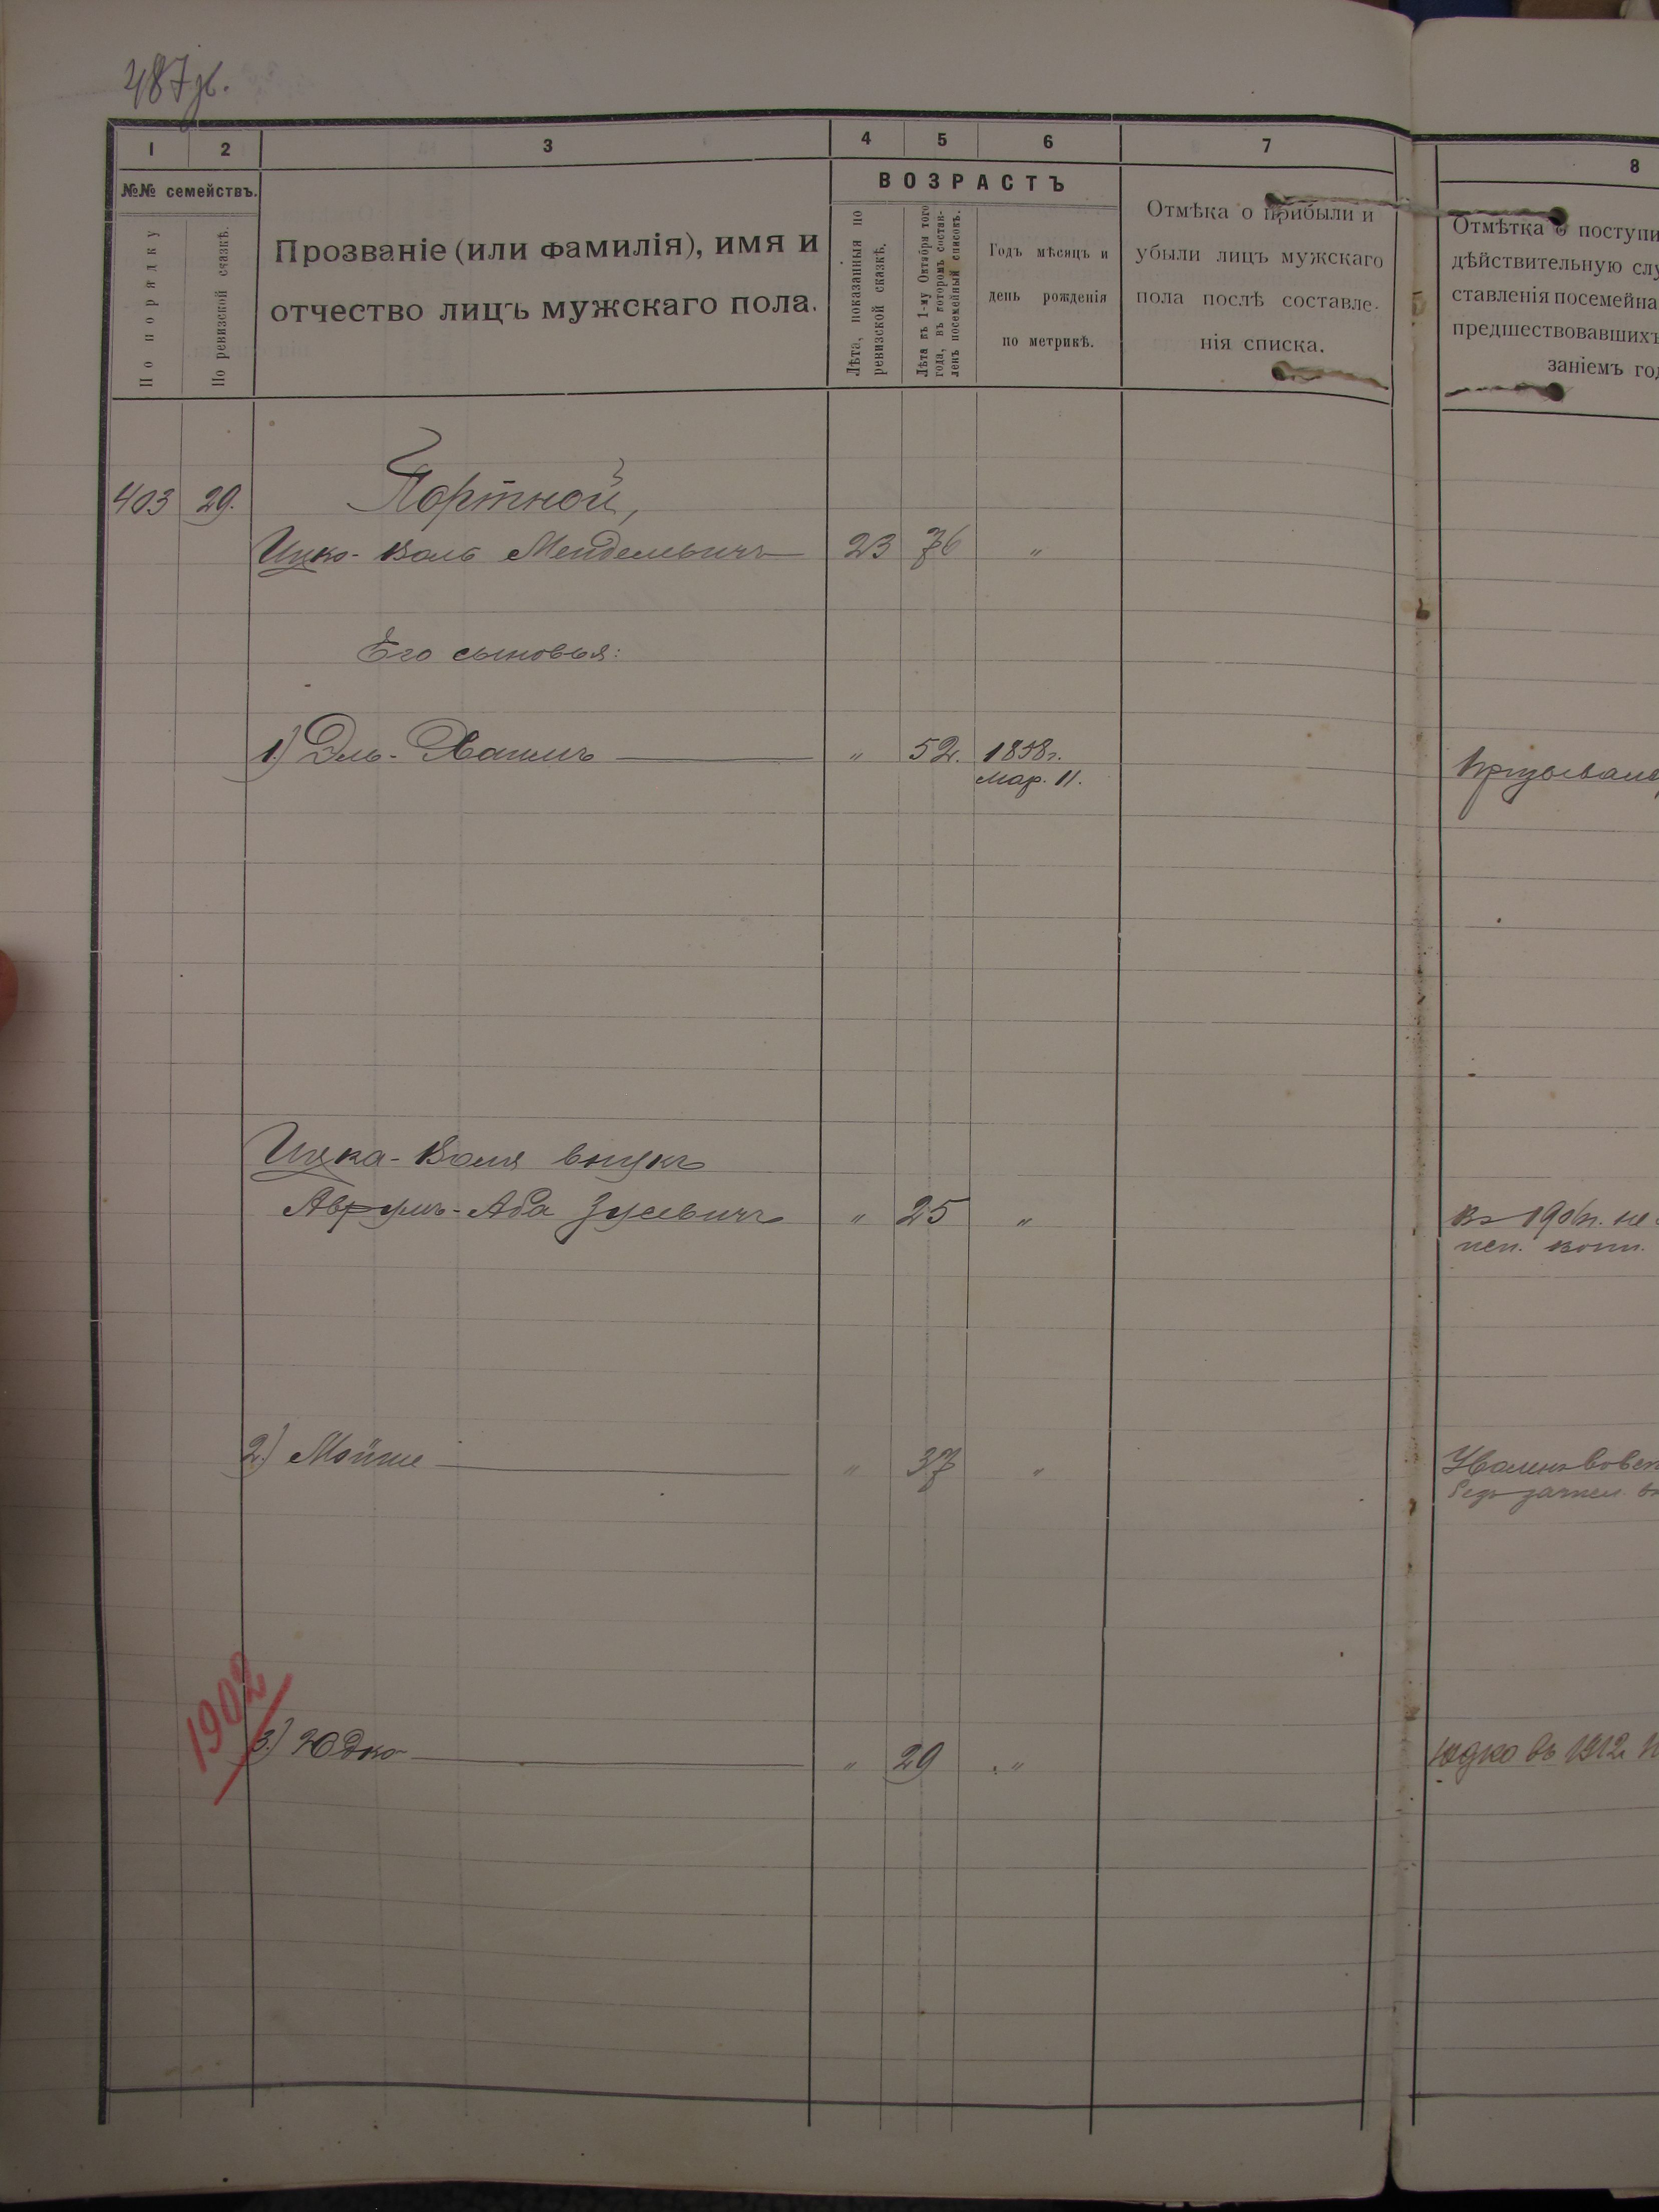 487 об.
1 2 3 4 5 6 7 8
№№ семействъ.
По порядку
По ревизской сказкѣ.
Прозваніе (или фамилія), имя и
отчество лицъ мужскаго пола.
ВОЗРАСТЪ
Лѣта, показанныя по
ревизской сказкѣ.
Лѣта къ 1-му Октября того
года, въ которомъ состав-
ленъ посемейный списокъ.
Годъ мѣсяцъ и
день рожденія
по метрикѣ.
Отмѣка о прибыли и
убыли лицъ мужскаго
пола послѣ составле-
нія списка.
Отмѣтка о поступи
дѣйствительную слу
ставленія посемейна
предшествовавшихъ
заніемъ год
403 29. Портной,
Ицко-Воль Мендельвичъ 23 76 "
Его сыновья:
1.) Эль-Хаимъ " 52. 1858 г.
Мар. 11.
Ицка-Воля внукъ
Аврумъ-Аба Зусевичъ " 25 " въ 1906 г. не
2.) Мойше " 37 "
1902
3.) Юдко " 29 " Юдко въ 1912